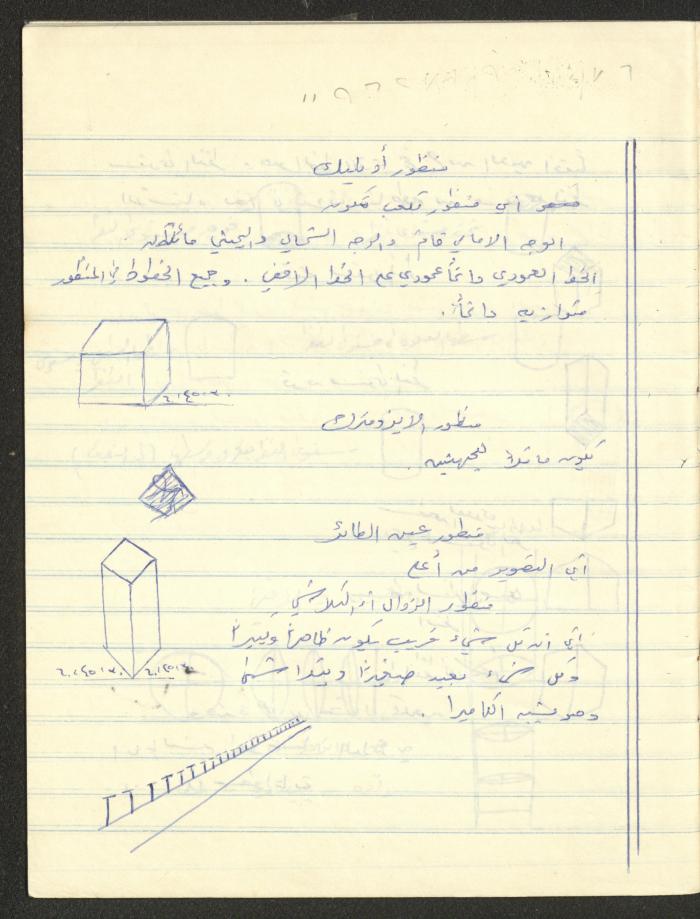 منظور أوبليك
أي منظور مكعب تكون
الوجه الامامي قائم والوجه الشمالي واليميني مائلان
الخط العمودي دائماً عمودي على الخط الافقي . وجميع الخطوط في المنظور
متوازيه دائماً .
٦٠،٤٥،٣٠
منظور الايزومترك
يكون مائلا لجهتين .
منظور عين الطائر
أي التصوير من أعلى
منظور الزوال أو التلاشي
أي ان كل شيء قريب يكون ظاهراً وكبيراً
وكل شيء بعيد صغيراً ويبدأ
٦٠،٤٥،٣٠ ٦٠،٤٥،٣٠
وهو يشبه الكاميرا .